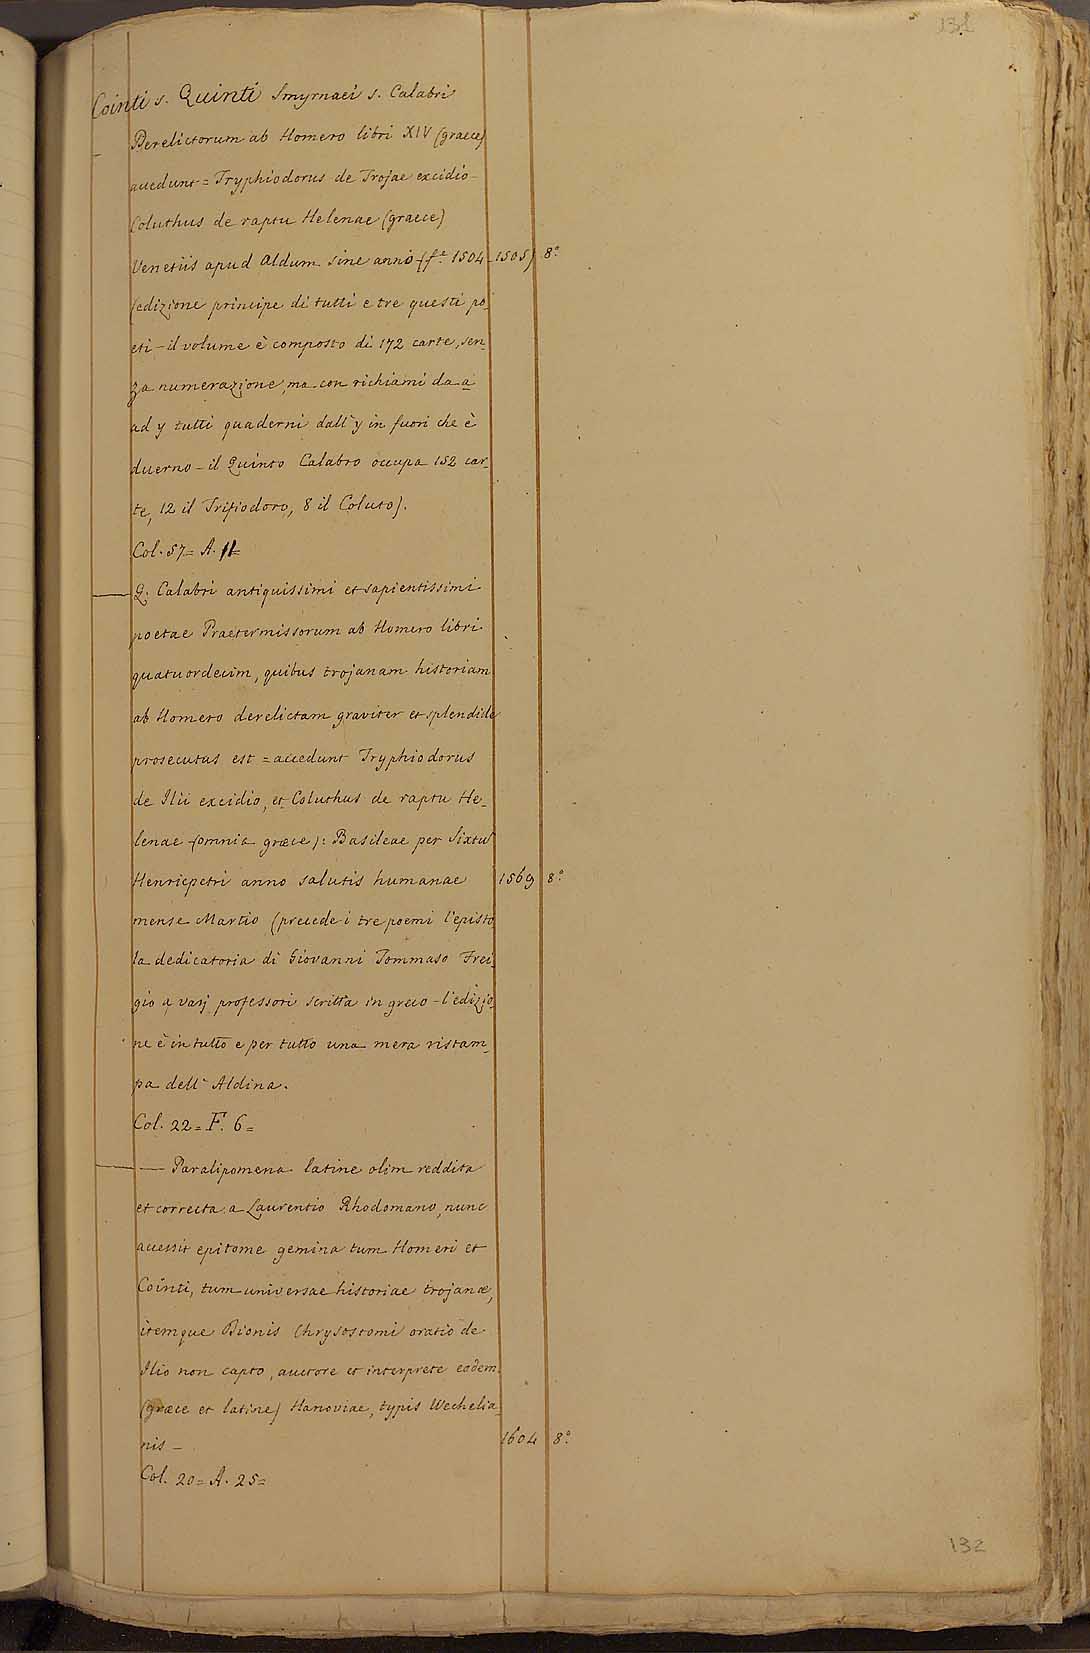 131
Cointi s. Quinti Smyrnaei s. Calabri
Derelictorum ab Homero libri XIV (graece)
accedunt = Tryphiodorus de Trojae excidio -
Coluthus de raptu Helenae (graece)
Venetiis apud Aldum sine anno (fe. 1504-1505) 8°
(edizione principe di tutti e tre questi po_
eti - il volume è composto di 172 carte, sen_
za numerazione, ma con richiami da a
ad y tutti quaderni dall'y in fuori che è
duerno - il Quinto Calabro occupa 152 car_
te, 12 il Trifiodoro, 8 il Coluto).
Col. 57 = A. 11 =
— Q. Calabri antiquissimi et sapientissimi
poetae Praetermissorum ab Homero libri
quatuordecim, quibus trojanam historiam
ab Homero derelictam graviter et splendide
prosecutus est = accedunt Tryphiodorus
de Ilii excidio, et Coluthus de raptu He_
lenae (omnia græce): Basileae per Sixtū
Henricpetri anno salutis humanae 1569 8°
mense Martio (precede i tre poemi l'episto_
la dedicatoria di Giovanni Tommaso Frei_
gio a varj professori scritta in greco - l'edizio_
ne è in tutto e per tutto una mera ristam_
pa dell'Aldina.
Col. 22 = F. 6 =
— — Paralipomena latine olim reddita
et correcta a Laurentio Rhodomano, nunc
accessit epitome gemina tum Homeri et
Cointi, tum universae historiae trojanæ,
itemque Dionis Chrysostomi oratio de
Ilio non capto, auctore et interprete eodem
(græce et latine) Hanoviae, typis Wechelia_
nis - 1604 8°
Col. 20 = A. 25 =
132